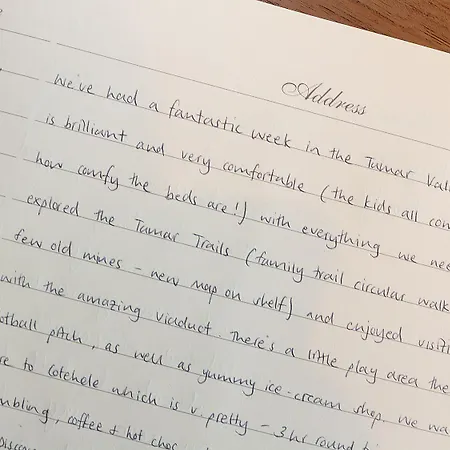 Address
We've had a fantastic week in the Tamar Val
is brilliant and very comfortable (the kids all com
how comfy the beds are!) with everything we nee
explored the Tamar Trails (family trail circular walk
few old mines - new map on shelf) and enjoyed visiti
with the amazing viaduct. There's a little play area the
otball pitch, as well as yummy ice-cream shop. We wa
re to Cotehele which is v. pretty - 3hr round
mbling, coffee & hot choc